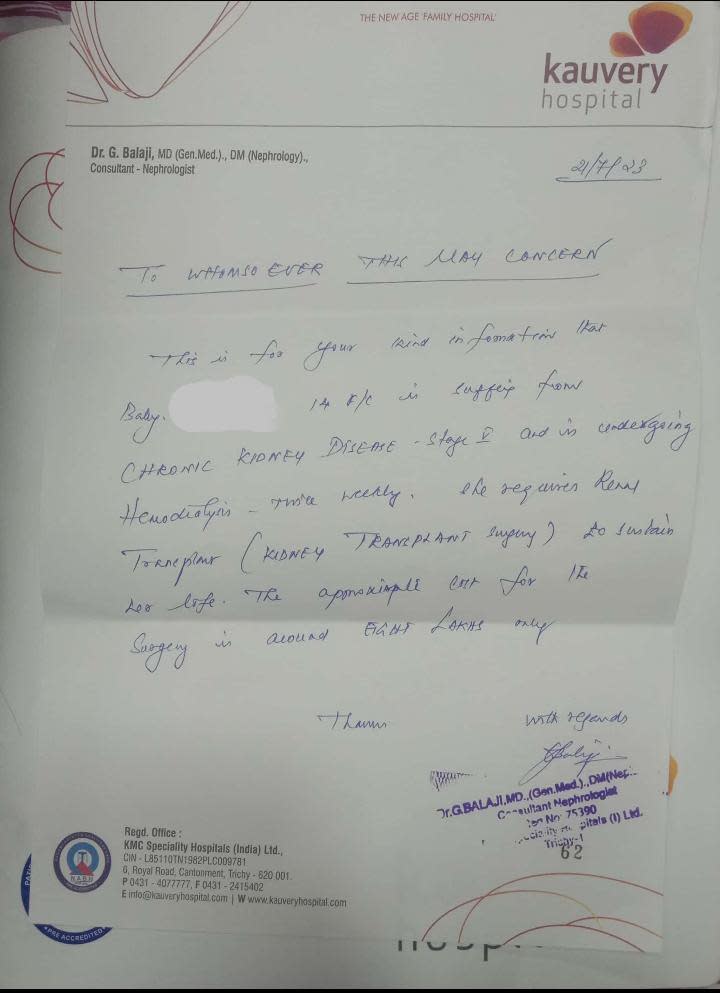 THE NEW AGE 'FAMILY HOSPITAL'
kauvery
hospital
Dr. G. Balaji, MD (Gen.Med.)., DM (Nephrology).,
Consultant - Nephrologist
21/7/23
To WHOMSO EVER THIS MAY CONCERN
This is for your kind information that
Baby. 14 F/C is suffeing from
CHRONIC KIDNEY DISEASE - Stage V and is undergoing
Hemodialysis - Thrice weekly. She requires Renal
Transplant (KIDNEY TRANSPLANT surgery) to sustain
her life. The approximate cost for the
Surgery is around EIGHT LAKHS only
Thanks With regards
Dr.G.BALAJI,MD.,(Gen.Med.).,DM(Nep..
Consultant Nephrologist
No: 75390
pitals (I) Ltd.
Trichy-1
62
Regd. Office :
KMC Speciality Hospitals (India) Ltd.,
CIN - L85110TN1982PLC009781
6, Royal Road, Cantonment, Trichy - 620 001.
P 0431 - 4077777, F 0431 - 2415402
E info@kauveryhospital.com | W www.kauveryhospital.com
N A B H
PRE ACCREDITED